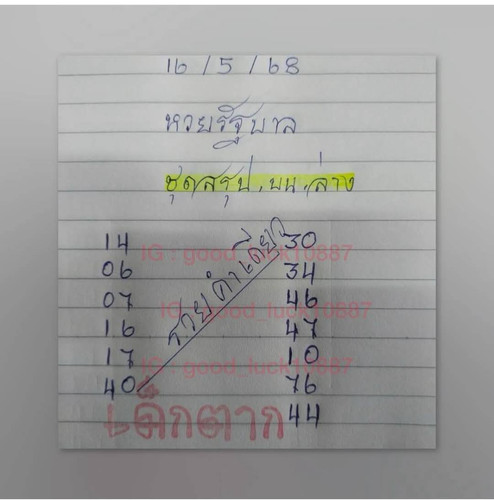 16/5/68
หวยรัฐบาล
ชุดสรุป.บน.ล่าง
14
06
07
16
17
40
รวยคำเดียว
30
34
46
47
10
76
44
IG : good_luck10887
IG : good_luck10887
IG : good_luck10887
เด็กตาก